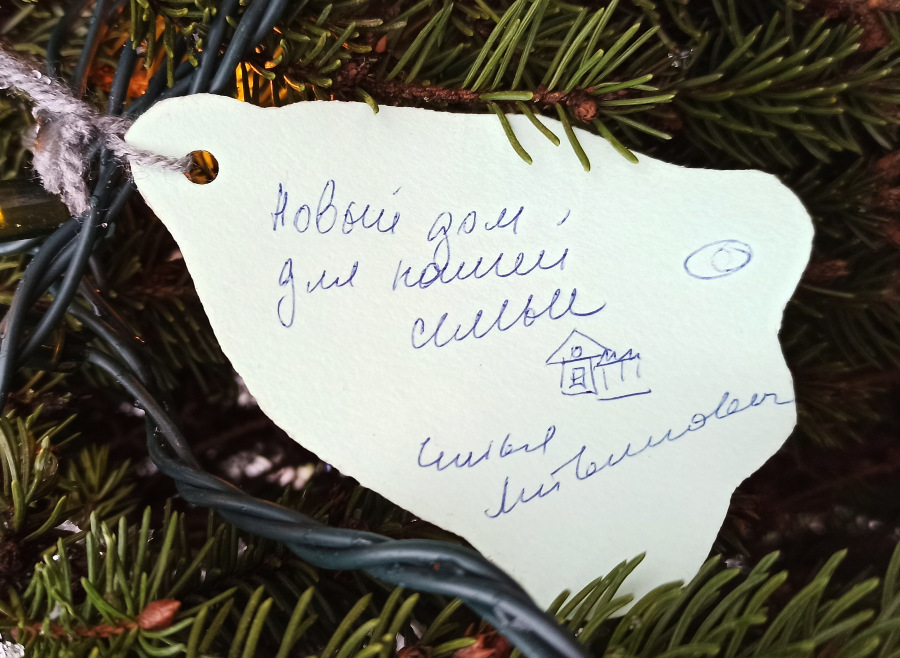 Новый дом,
для нашей
семьи
семья